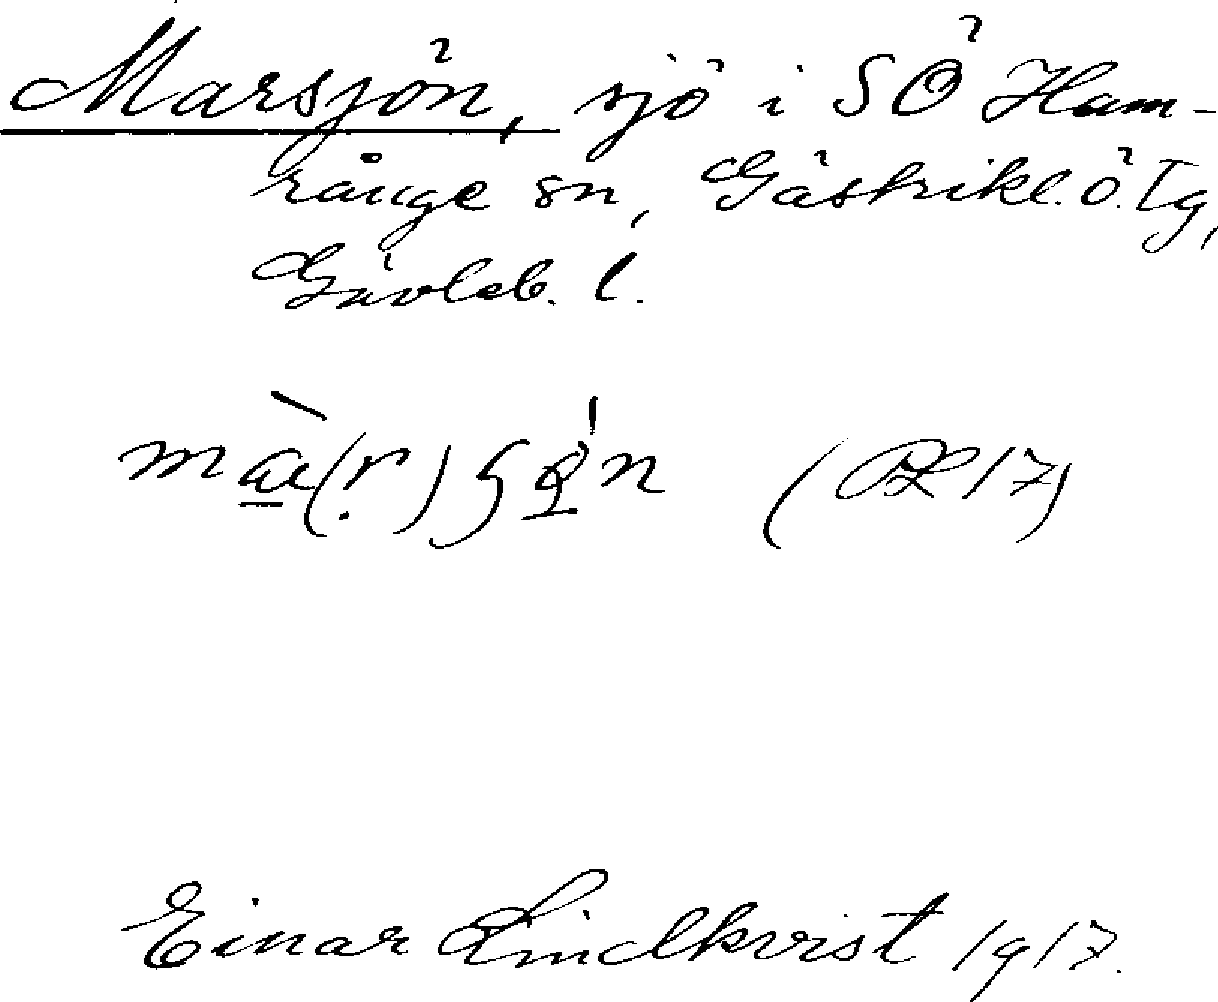 Marsjön, sjö i SÖ Ham-
rånge sn, Gästrikl. ö. Tg,
Gävleb. l.
(PL 17)
Einar Lindkvist 1917.